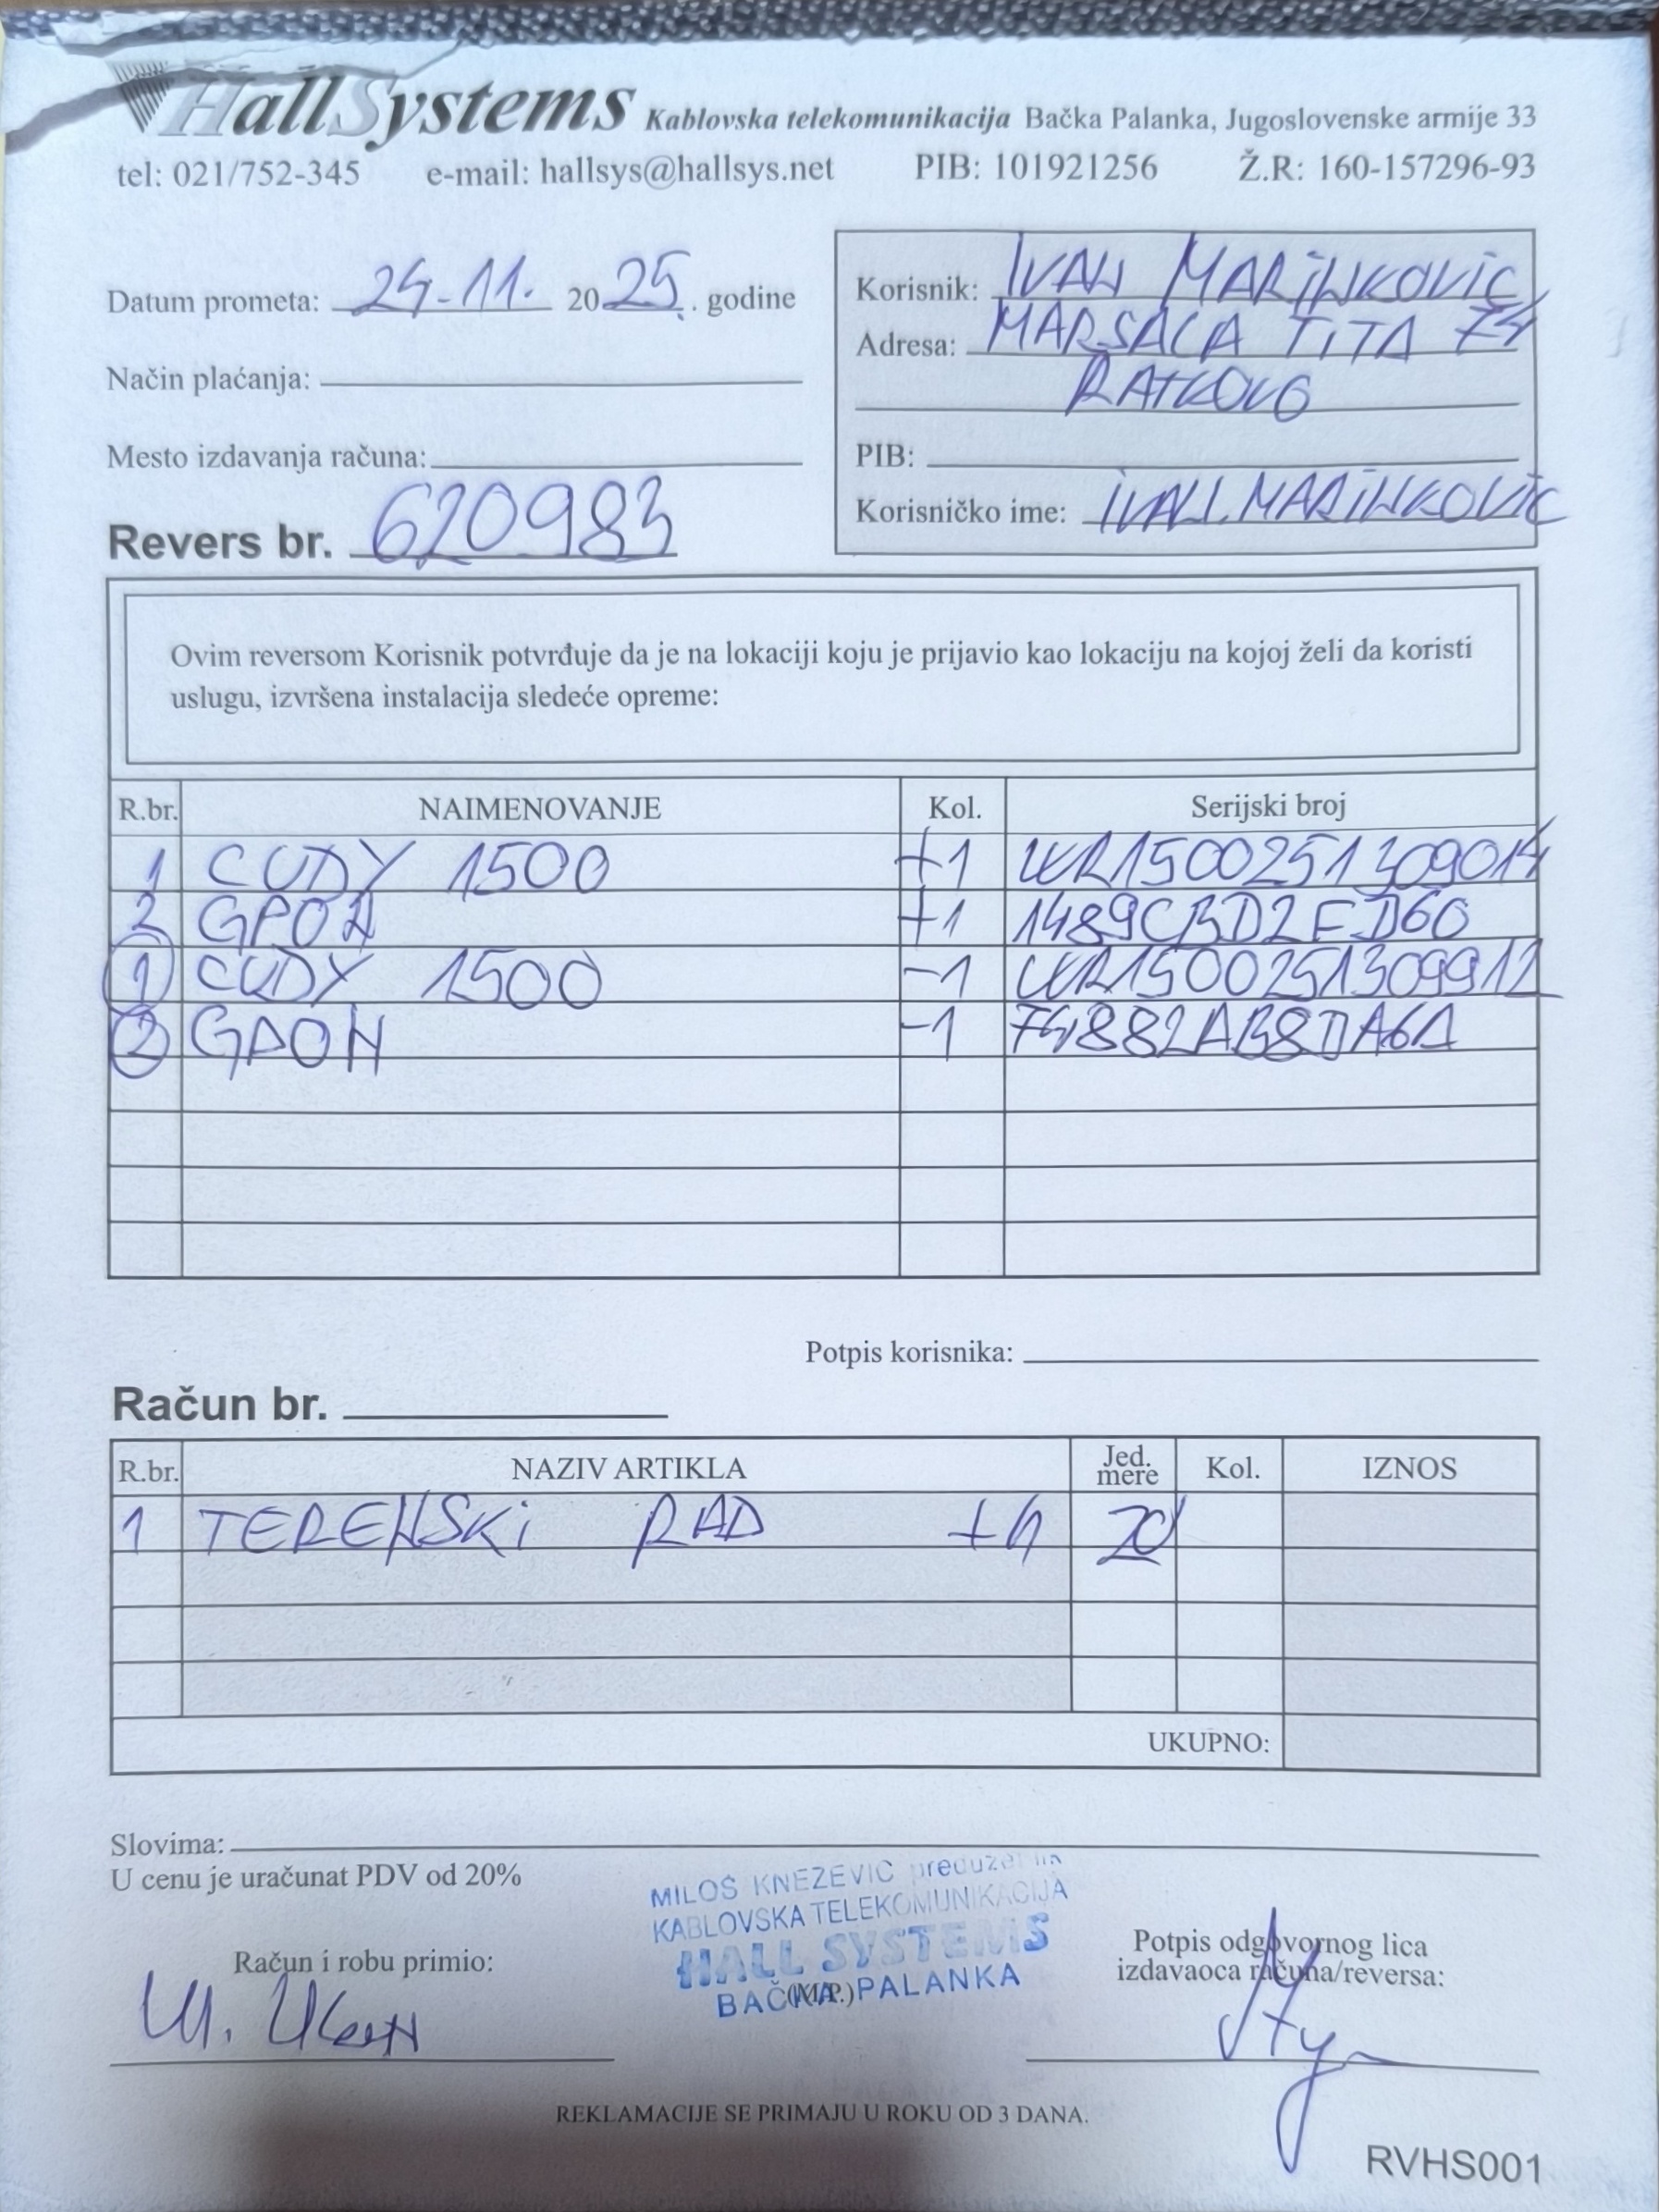 HallSystems Kablovska telekomunikacija Bačka Palanka, Jugoslovenske armije 33
tel: 021/752-345 e-mail: hallsys@hallsys.net PIB: 101921256 Ž.R: 160-157296-93
Datum prometa: 24.11. 2025. godine
Način plaćanja:
Mesto izdavanja računa:
Revers br. 620983
Korisnik: IVAN MARiNKOVIC
Adresa: MARSALA TiTA 74
RATKOVO
PIB:
Korisničko ime: IVAN.MARiNKOVIC
Ovim reversom Korisnik potvrđuje da je na lokaciji koju je prijavio kao lokaciju na kojoj želi da koristi
uslugu, izvršena instalacija sledeće opreme:
R.br. NAIMENOVANJE Kol. Serijski broj
1 CUDY 1500 +1
2 GPON +1 1489CBD2ED60
1 CUDY 1500 -1 WR1500251309912
2 GPON -1 74882AB8DA6A
Potpis korisnika:
Račun br.
R.br. NAZIV ARTIKLA Jed. mere Kol. IZNOS
1 TERENSKi RAD
UKUPNO:
Slovima:
U cenu je uračunat PDV od 20%
MILOŠ KNEŽEVIĆ preduzetnik
KABLOVSKA TELEKOMUNIKACIJA
HALL SYSTEMS
BAČKA PALANKA
(M.P.)
Račun i robu primio:
Potpis odgovornog lica
izdavaoca računa/reversa:
REKLAMACIJE SE PRIMAJU U ROKU OD 3 DANA.
RVHS001